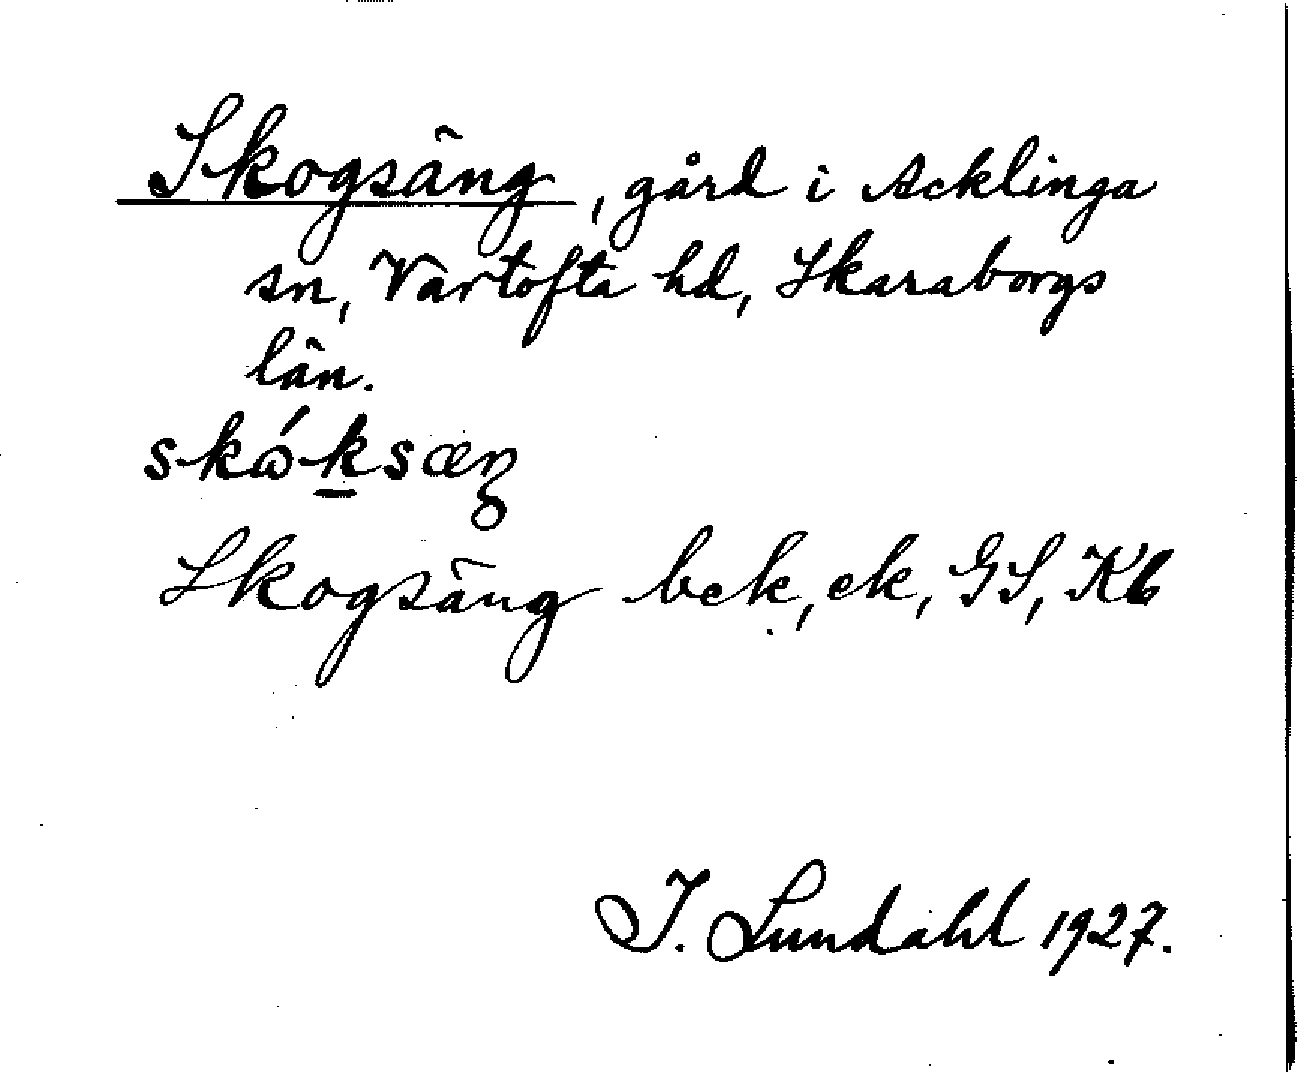 Skogsäng, gård i Acklinga
sn, Vartofta hd, Skaraborgs
län.
skɷ́ksæŋ
Skogsäng bek, ek, GS, Kb
I. Lundahl 1927.